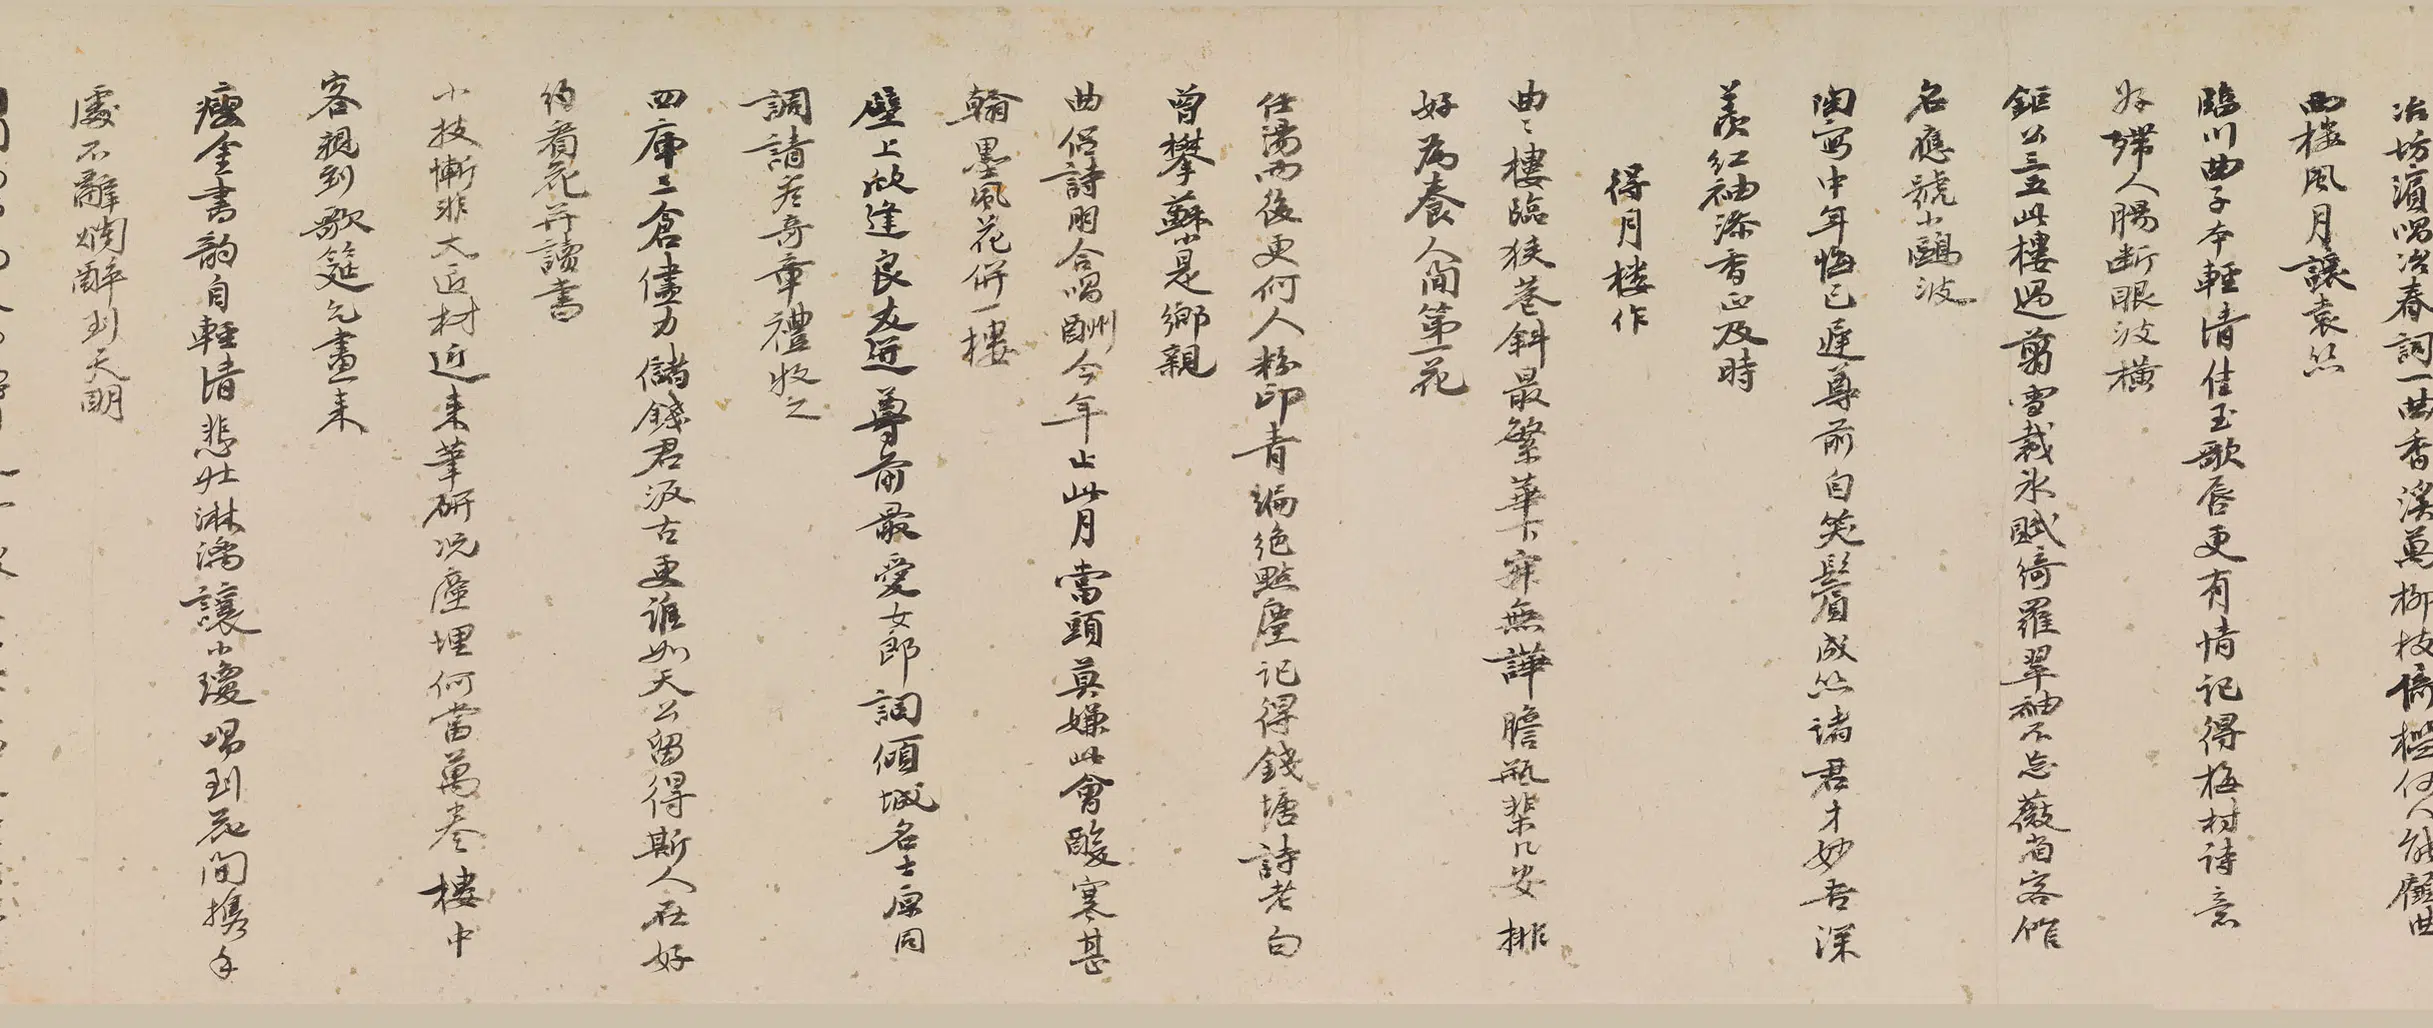 冶坊濱唱冶春詞一曲香溪萬柳枝倚檻何人能顧曲
西樓風月讓袁絲
臨川曲子本輕清佳玉歌唇更有情記得梅村詩意
好歸人腸断眼波橫
鉅公三五此樓過剪雪裁氷賦綺羅翠袖不忘薇省客
名應號小鷗波
陶寫中年悔已遲尊前自笑鬢成絲諸君才妙吾深
羨紅袖添香正及時
得月楼作
曲〻樓臨狹巷斜最繁華下寂無譁膽瓶棐几安排
好為養人間第一花
仕湯而後更何人粉印青編絶點塵記得錢塘詩老句
曾攀蘇小是鄉親
曲侶詩朋合唱酬今年止此月當頭莫嫌此會酸寒甚
翰墨風花併一樓
壁上欣逢良友迹尊前最愛女郎調傾城名士原同
調請君奇章禮牧之
四庫三倉儘力儲錢君汲古更誰如天公留得斯人在好
約看花并讀書
小技慚非大匠材近来筆研况塵埋何當萬卷樓中
客親到歌筵乞畫来
瘦金書韵自輕清悲壯淋漓讓小瓊唱到花間携手
處不辭爛醉到天明